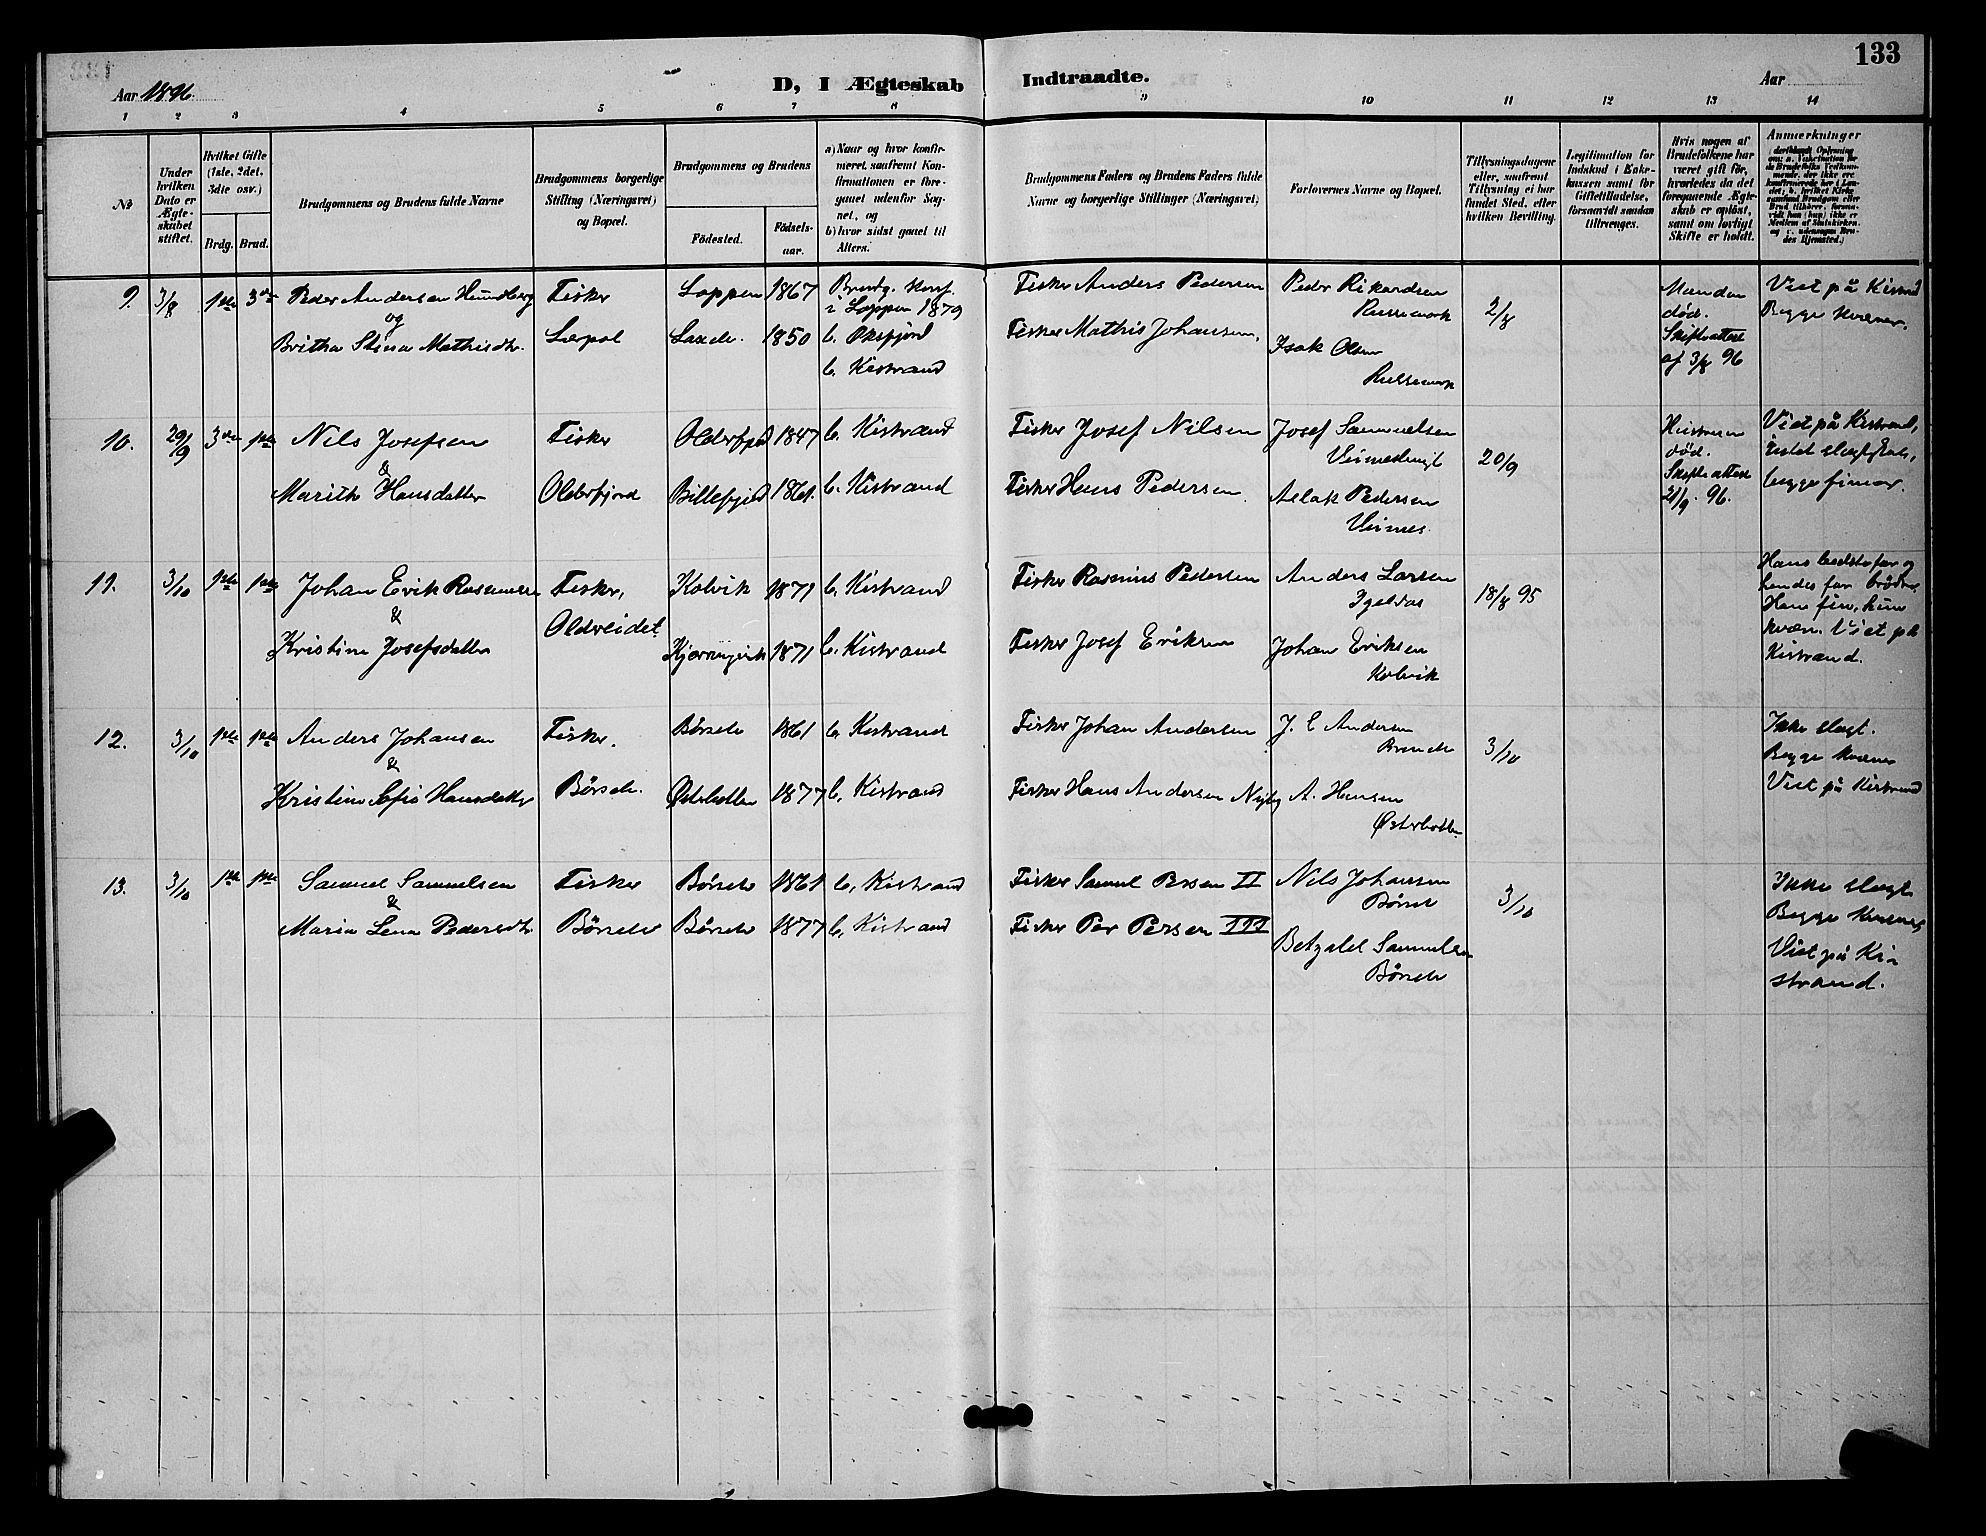 133
D, I Ægteskab Indtraadte.
Aar 1896.
Aar
1 2 3 4 5 6 7 8 9 10 11 12 13 14
№
Under hvilken Dato er Ægteskabet stiftet.
Hvilket Gifte (1ste, 2det, 3die osv.)
Brdg. Brud.
Brudgommens og Brudens fulde Navne
Brudgommens borgerlige Stilling (Næringsvei) og Bopæl.
Brudgommens og Brudens
Fødested.
Fødselsaar.
a) Naar og hvor konfirmeret, saafremt Konfirmationen er foregaaet udenfor Sognet, og
b) hvor sidst gaaet til Alters.
Brudgommens Faders og Brudens Faders fulde Navne og borgerlige Stillinger (Næringsvei)
Forlovernes Navne og Bopæl.
Tillysningsdagene eller, saafremt Tillysning ei har fundet Sted, efter hvilken Bevilling.
Legitimation for Indskud i Enkekassen samt for Giftetilladelse, forsaavidt saadan tiltrænges.
Hvis nogen af Brudefolkene har været gift før, hvorledes da det foregaaende Ægteskab er opløst, samt om lovligt Skifte er holdt.
Anmærkninger
9. 3/8 1ste 3die Peder Andersen Hundberg Fisker Loppen 1867 Brudg. konf. Fisker Anders Pedersen Peder Rikardsen
og i Loppen 1879 Russemark 2/8
Britha Stina Mathisdtr. 1850 b. Øksfjord Fisker Mathis Johansen. Isak Olsen
b. Kistrand Russemark
Manden død. Skifteattest af 3/8 96
Viet på Kistrand
Begge kvæner.
10. 29/9 3die 1ste Nils Josefsen Fisker Olderfjord 1847 b. Kistrand Fisker Josef Nilsen Josef Samuelsen
& 20/9
Marith Hansdatter Olderfjord Billefjord 1861 b. Kistrand Fisker Hans Pedersen. Aslak Pedersen
Veines.
Hustruen død. Skifteattest 21/9. 96.
Viet på Kistrand,
Intet slægtskab,
begge finner.
11. 3/10 1ste 1ste Johan Erik Rasmussen Fisker, Kolvik 1871 b. Kistrand Fisker Rasmus Pedersen Anders Larsen
& Oldereidet Igeldas 18/8 95
Kristine Josefsdatter 1871 b. Kistrand Fisker Josef Eriksen Johan Eriksen
Kolvik
Hans bedstefar og
hendes far brödre.
Han fin, hun
kvæn. Viet på
Kistrand.
12. 3/10 1ste 1ste Anders Johansen Fisker. Børselv 1861 b. Kistrand Fisker Johan Andersen J. E Andersen
& 3/10
Kristine Sofie Hansdatter Børselv. Østerbotten 1877 b. Kistrand Fisker Hans Andersen Nyby A. Hansen
Østerbotten
Ikke slægt.
Begge kvæner
Viet på Kistrand
13. 3/10 1ste 1ste Samuel Samuelsen Fisker Børselv 1861 b. Kistrand Fisker Samuel Persen II Nils Johansen
& Børselv 3/10
Maria Lena Pedersdtr Børselv Børselv 1877 b. Kistrand Fisker Per Persen III
Betzalel Samuelsen
Børselv
Ikke slægt
Begge kvæner
Viet på Ki-
strand.